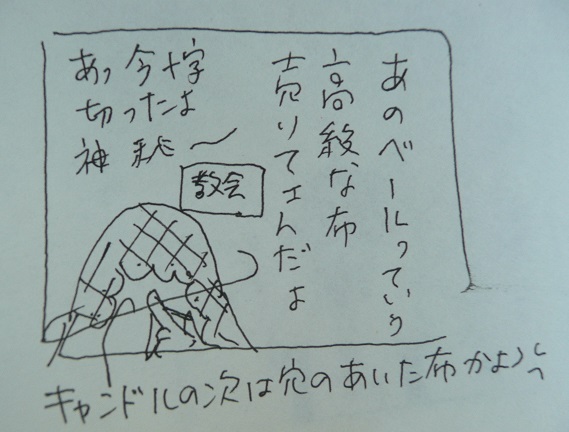 あのベールっていう
高級な布
売りてェんだよ
あっ今十字
切ったよ
神秘〜
教会
キャンドルの次は穴のあいた布かよ